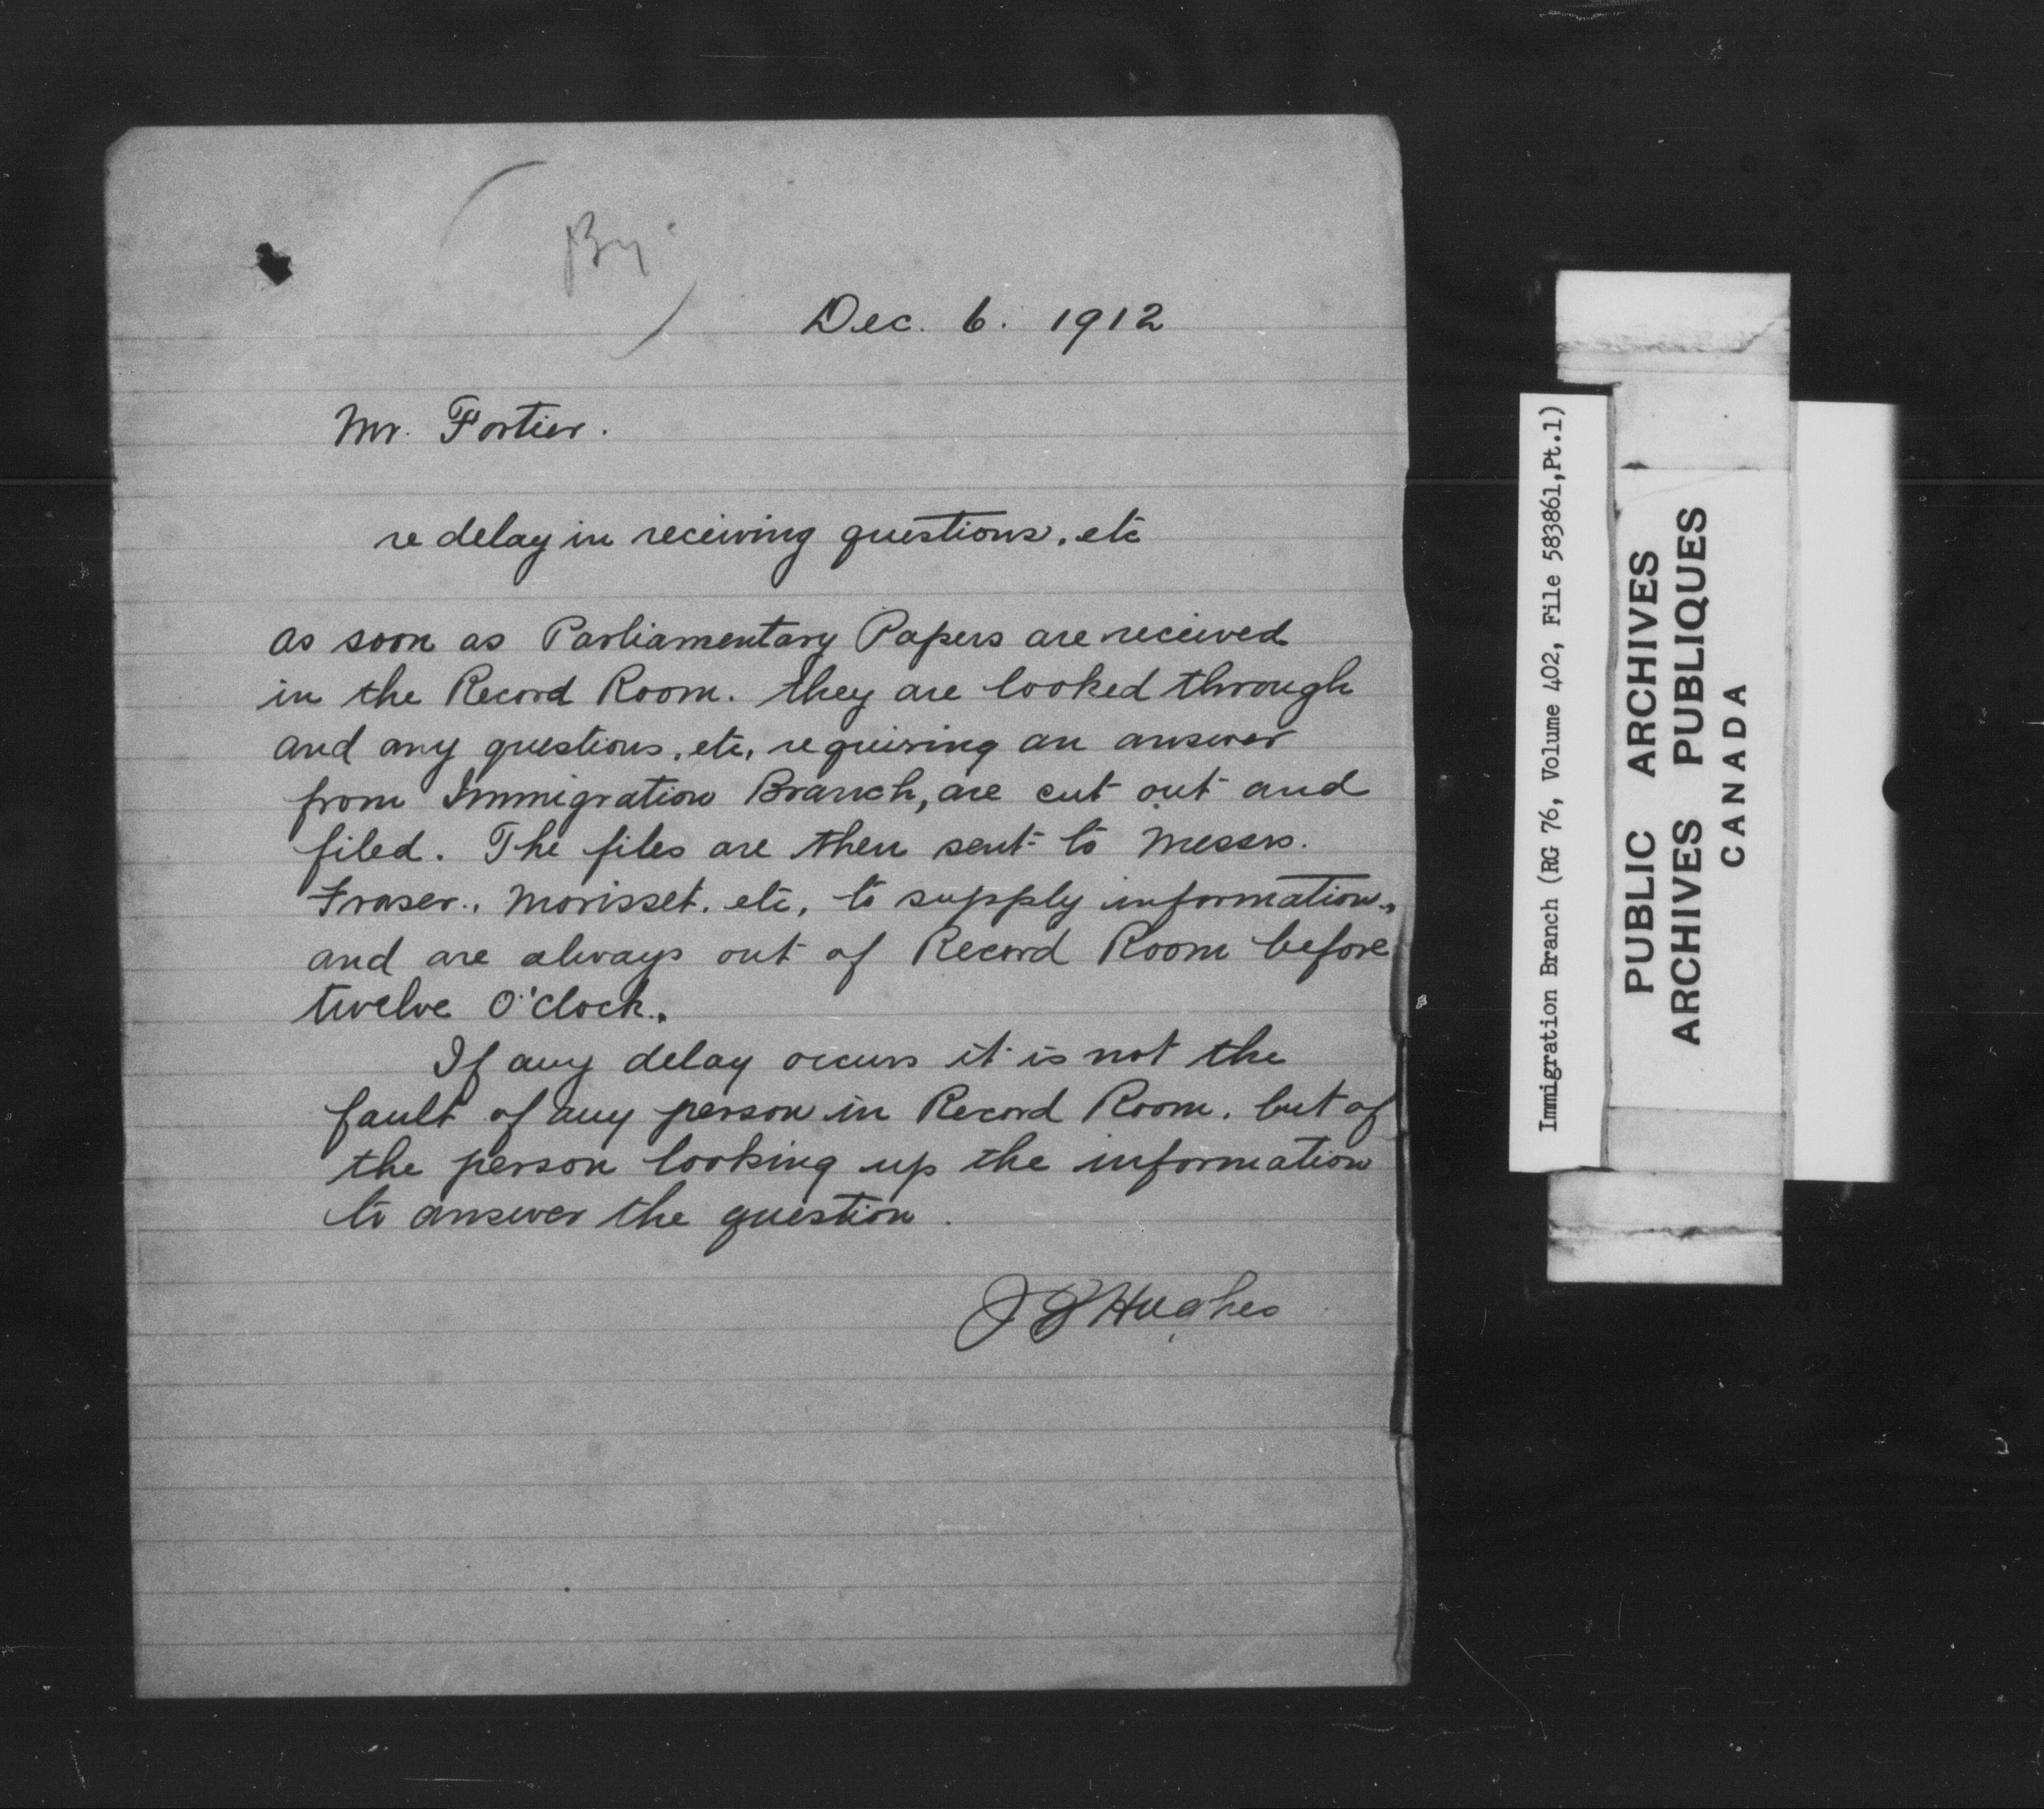 By
Dec. 6. 1912
Mr. Fortier.
re delay in receiving questions, etc
As soon as Parliamentary Papers are received
in the Record Room. they are looked through
and any questions, etc, requiring an answer
from Immigration Branch, are cut out and
filed. The files are then sent to Messrs.
Fraser., Morisset, etc, to supply information.,
and are always out of Record Room before
twelve O'clock.,
If any delay occurs it is not the
fault of any person in Record Room, but of
the person looking up the information
to answer the question.
Hughes
Immigration Branch (RG 76, Volume 402, File 583861,Pt.1)
PUBLIC ARCHIVES
ARCHIVES PUBLIQUES
CANADA